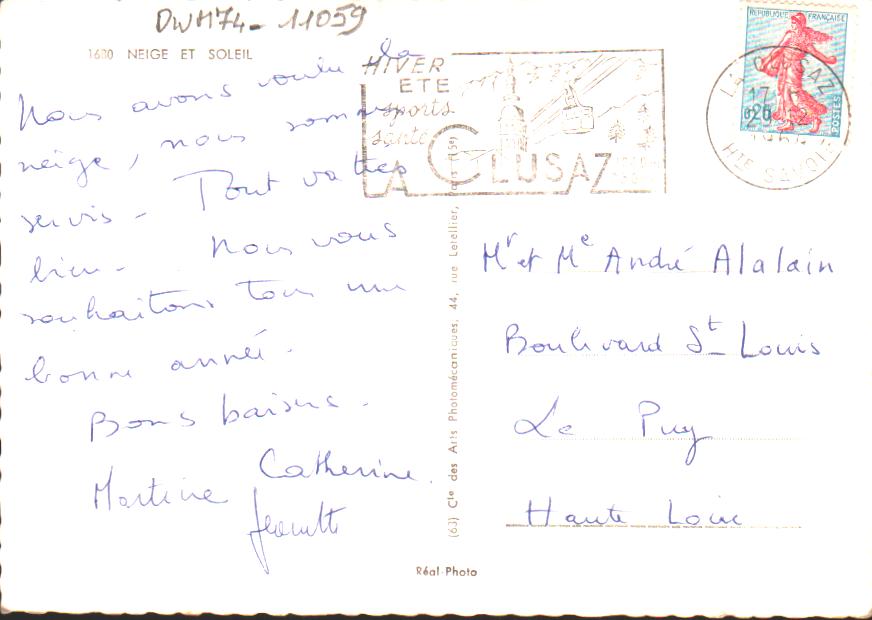 DWH74-11059
1630 NEIGE ET SOLEIL
Nous avons voulu la
neige, nous sommes
servis - Tout va très
bien - Nous vous
souhaitons tous une
bonne année.
Bons baisers.
Catherine
Martine
HIVER
ETE
sports
santé
LA CLUSAZ
REPUBLIQUE FRANÇAISE
POSTES
LA CLUSAZ
17 H
HTE SAVOIE
Mr et Me André Alalain
Boulevard St Louis
Le Puy
Haute Loire
(63) Cie des Arts Photomécaniques, 44, rue Letellier, Paris (15e)
Réal-Photo